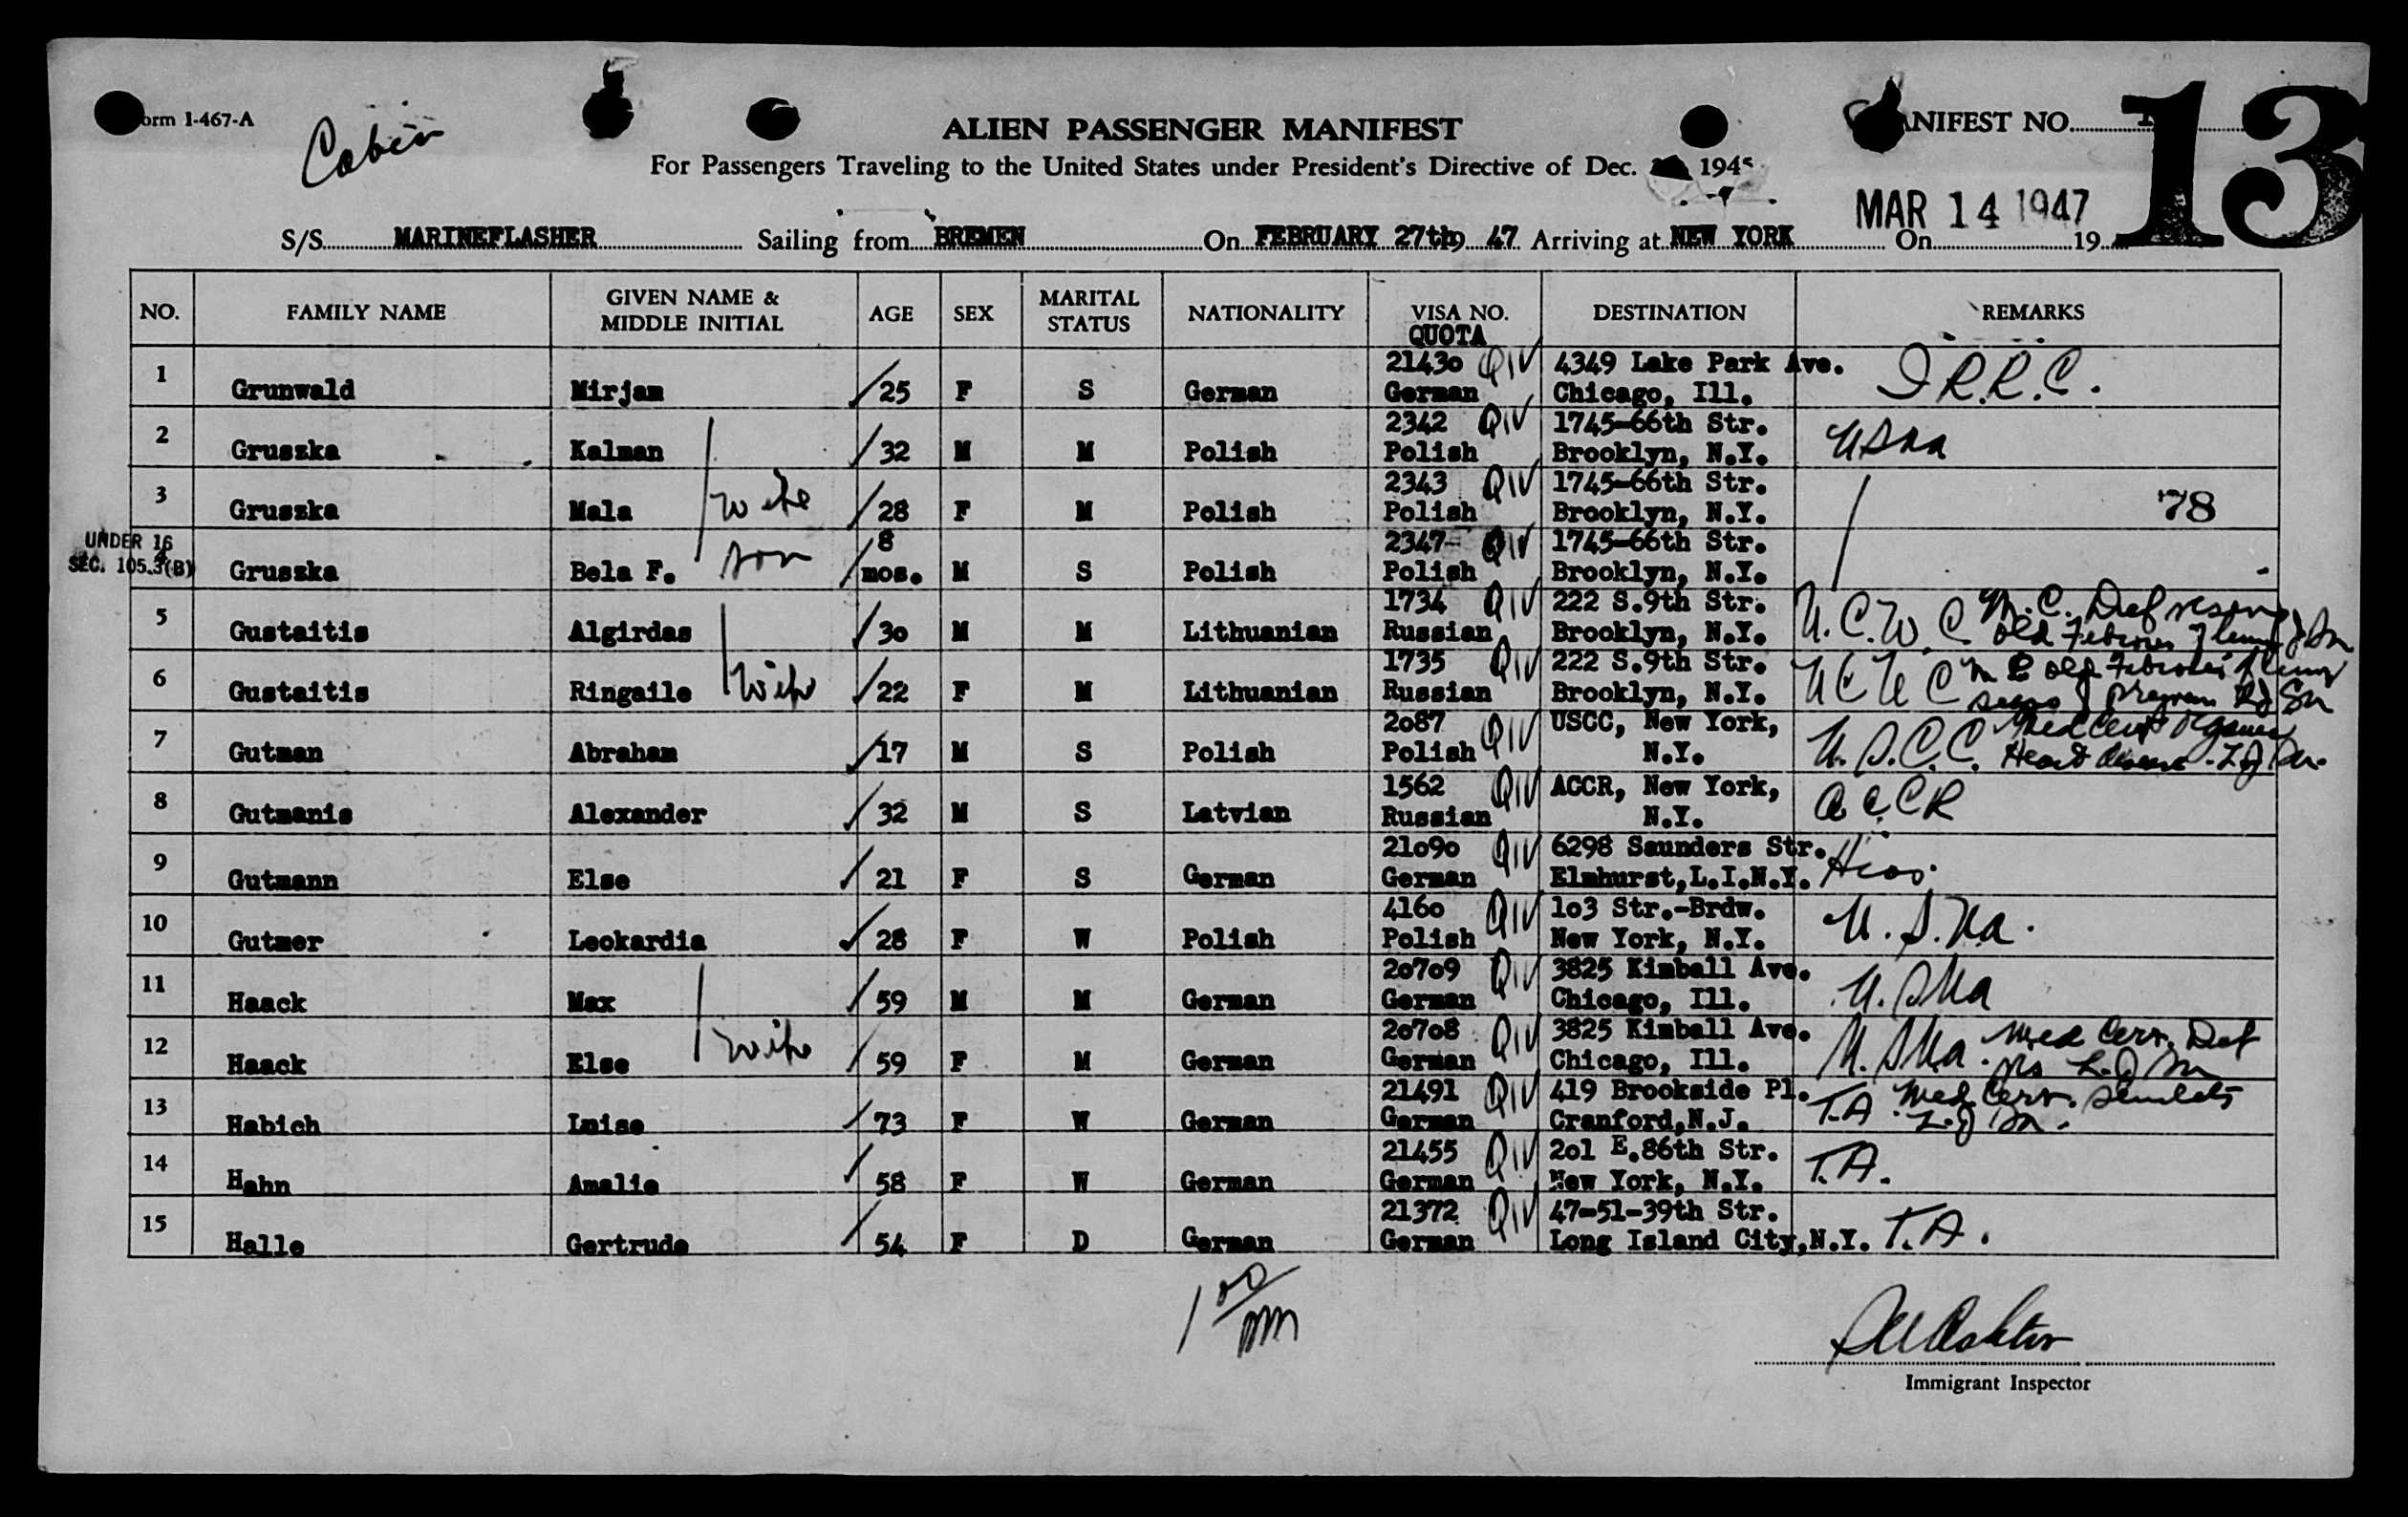 Form 1-467-A
Cabin
ALIEN PASSENGER MANIFEST
MANIFEST NO.
13
For Passengers Traveling to the United States under President's Directive of Dec. 1945
MAR 14 1947
S/S MARINEFLASHER Sailing from BREMEN On FEBRUARY 27th, 47 Arriving at NEW YORK On 19
NO. FAMILY NAME GIVEN NAME & MIDDLE INITIAL AGE SEX MARITAL STATUS NATIONALITY VISA NO. QUOTA DESTINATION REMARKS
1 Grunwald Mirjam 25 F S German 21430 QIV German 4349 Lake Park Ave. Chicago, Ill. I.R.R.C.
2 Gruszka Kalman 32 M M Polish 2342 QIV Polish 1745-66th Str. Brooklyn, N.Y. USNA
3 Gruszka Mala wife 28 F M Polish 2343 QIV Polish 1745-66th Str. Brooklyn, N.Y. 78
UNDER 16 SEC. 105.3(B)
4 Gruszka Bela F. son 8 mos. M S Polish 2347 QIV Polish 1745-66th Str. Brooklyn, N.Y.
5 Gustaitis Algirdas 30 M M Lithuanian 1734 QIV Russian 222 S.9th Str. Brooklyn, N.Y. N.C.W.C. M.C. Def vision old
6 Gustaitis Ringaile wife 22 F M Lithuanian 1735 QIV Russian 222 S.9th Str. Brooklyn, N.Y. M C old
7 Gutman Abraham 17 M S Polish 2087 QIV Polish USCC, New York, N.Y. U.S.C.C. Med Cert Heart disease
8 Gutmanis Alexander 32 M S Latvian 1562 QIV Russian ACCR, New York, N.Y. ACCR
9 Gutmann Else 21 F S German 21090 QIV German 6298 Saunders Str. Elmhurst,L.I.N.Y. Hias
10 Gutmer Leokardia 28 F W Polish 4160 QIV Polish 103 Str.-Brdw. New York, N.Y. U.S.Na.
11 Haack Max 59 M M German 20709 QIV German 3825 Kimball Ave. Chicago, Ill. U.SNa
12 Haack Else wife 59 F M German 20708 QIV German 3825 Kimball Ave. Chicago, Ill. U.SNa. Med Cert. Def
13 Habich Luise 73 F W German 21491 QIV German 419 Brookside Pl. Cranford,N.J. T.A Med. Cert. Senility
14 Hahn Amalie 58 F W German 21455 QIV German 201 E.86th Str. New York, N.Y. T.A.
15 Halle Gertrude 54 F D German 21372 QIV German 47-51-39th Str. Long Island City,N.Y. T.A.
Immigrant Inspector